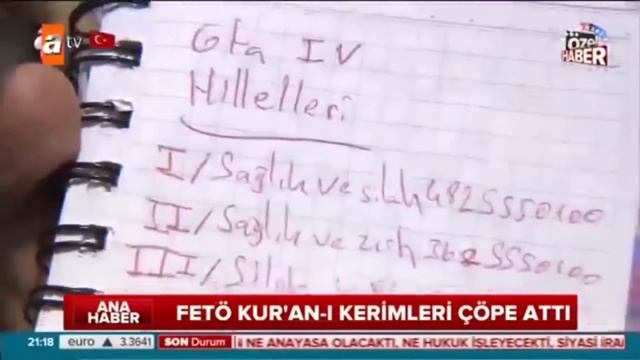 atv
ÖZEL
HABER
Gta IV
Hıllelleri
I/Sağlık ve sılah 4825550100
II/Sağlık ve zırh 3625550100
III/Sılah
ANA
HABER
FETÖ KUR'AN-I KERİMLERİ ÇÖPE ATTI
21:18 euro ▲ 3.3641 SON Durum NE ANAYASA OLACAKTI, NE HUKUK İŞLEYECEKTİ, SİYASİ İRA